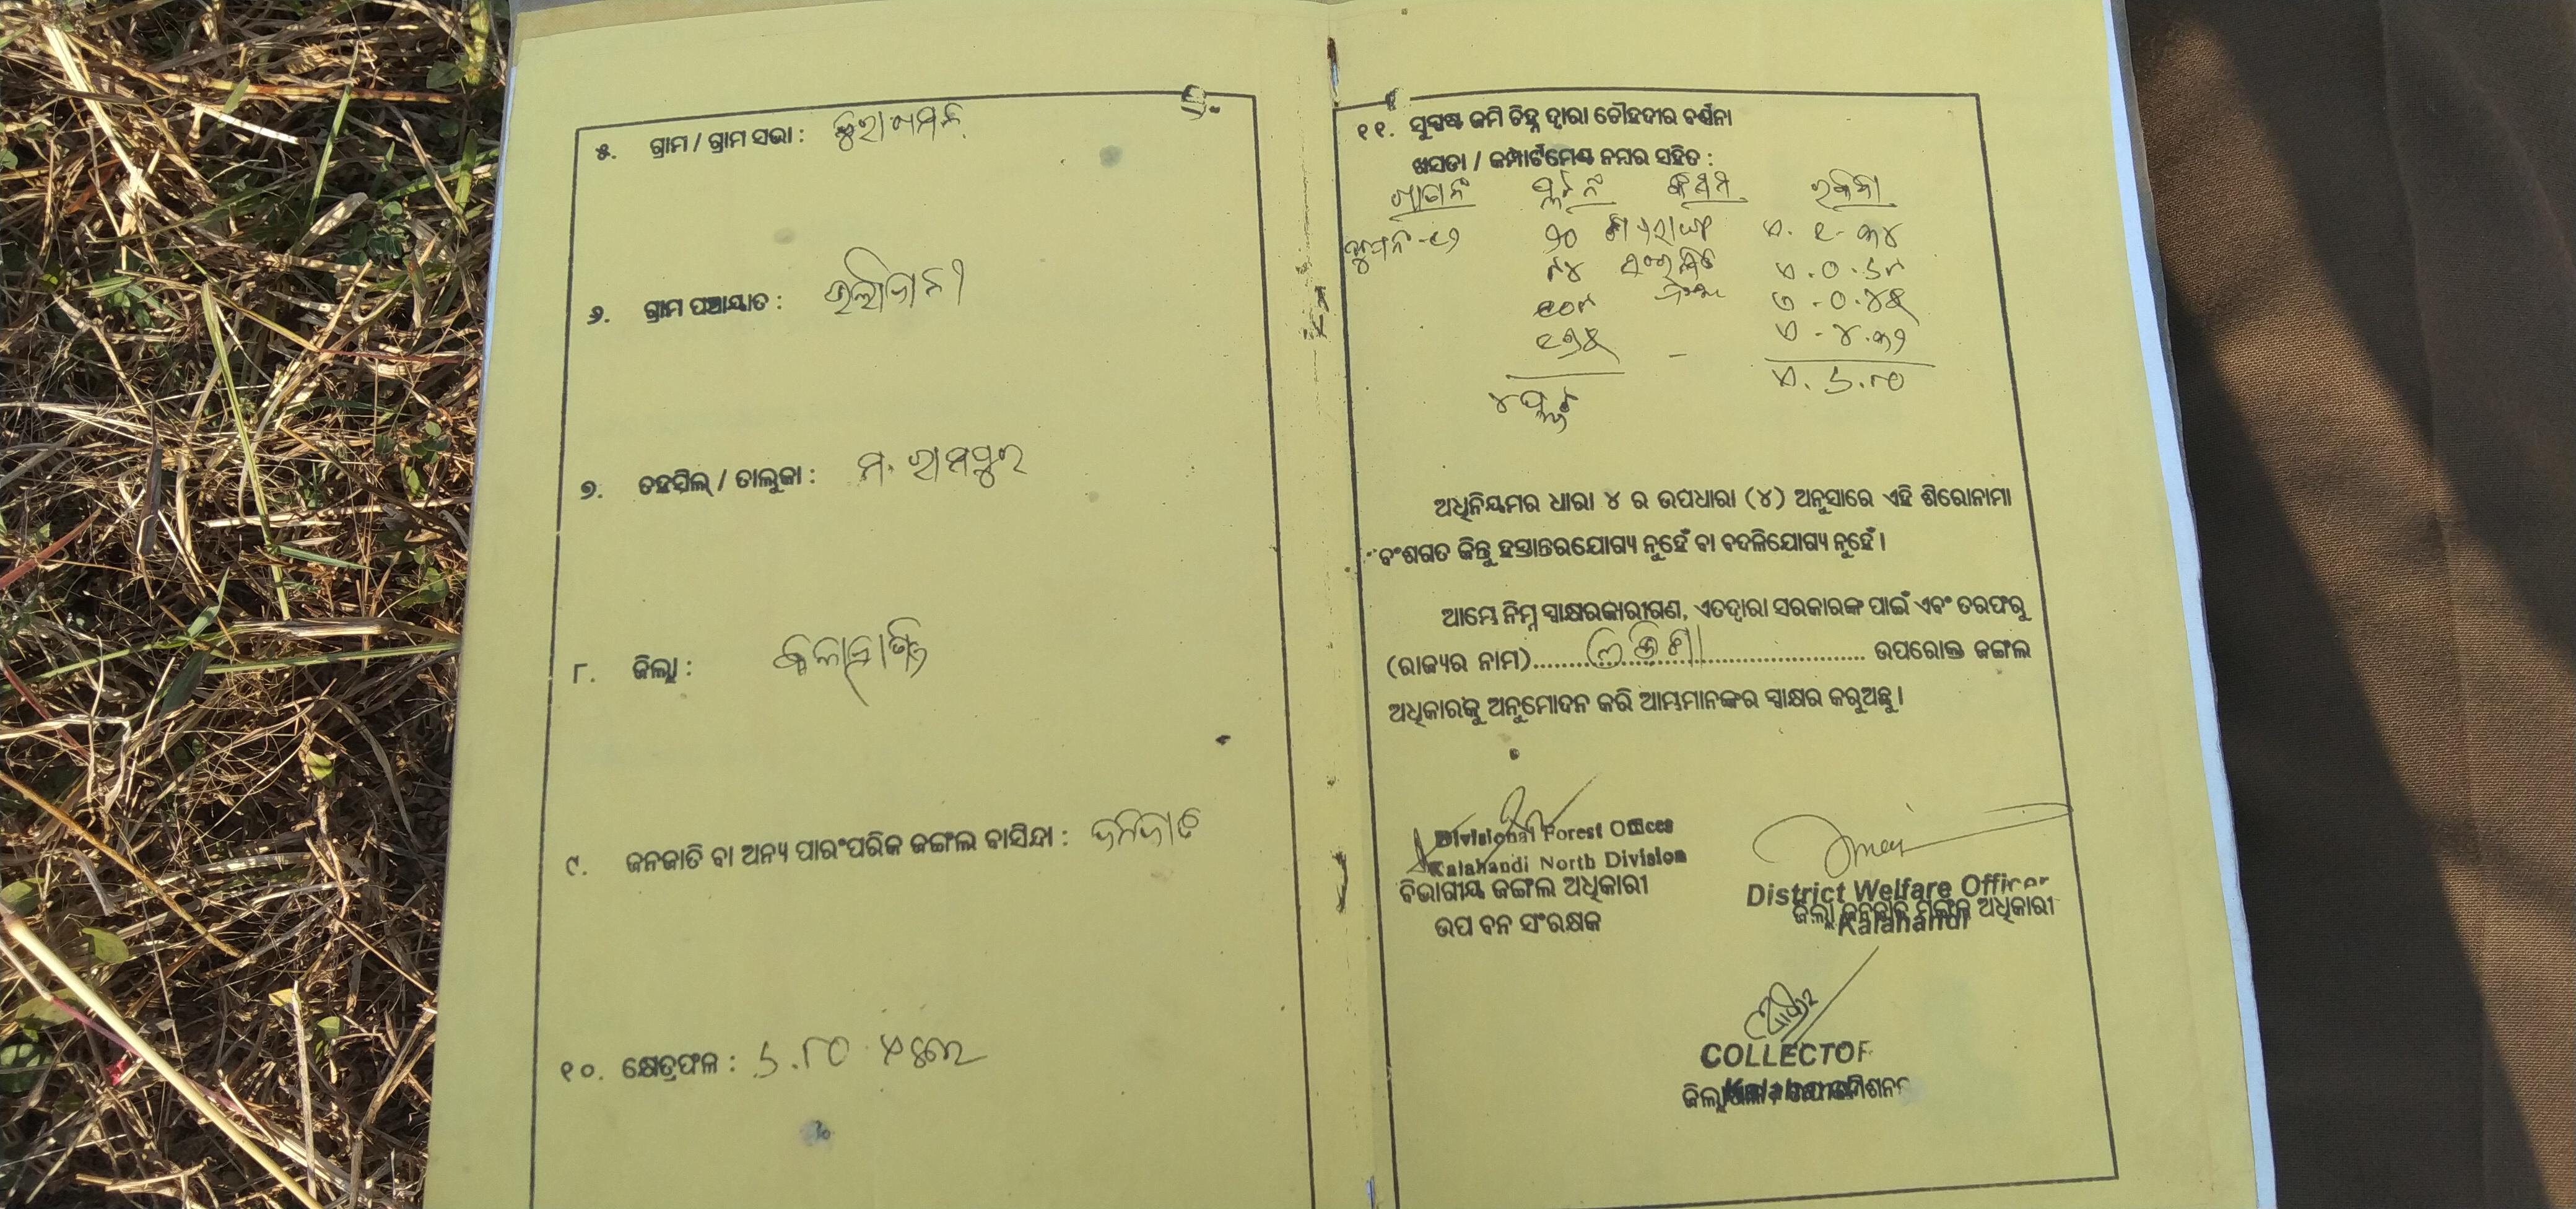 ୫. ଗ୍ରାମ / ଗ୍ରାମ ସଭା :
୬. ଗ୍ରାମ ପଞ୍ଚାୟତ :
୭. ତହସିଲ୍ / ତାଲୁକା : ମ. ରାମପୁର
୮. ଜିଲ୍ଲା : କଳାହାଣ୍ଡି
୯. ଜନଜାତି ବା ଅନ୍ୟ ପାରଂପରିକ ଜଙ୍ଗଲ ବାସିନ୍ଦା : ଜନଜାତି
୧୦. କ୍ଷେତ୍ରଫଳ : ୬.୮୦ ଏକର
୧୧. ସୁସ୍ପଷ୍ଟ ଜମି ଚିହ୍ନ ଦ୍ଵାରା ଚୌହଦୀର ବର୍ଣ୍ଣନା
ଖସଡା / କମ୍ପାର୍ଟମେଣ୍ଟ ନମ୍ବର ସହିତ :
ଖାତା ନଂ ପ୍ଲଟ ନଂ କିସମ ରକବା
୨୦ ଏ. ୧- ୩୪
୮୪ ଏ.୦.୬୮
୧୦୮ ଏ-୦.୪୫
୧୭୫ - ଏ-୪.୩୨
୪ ପ୍ଲଟ ଏ. ୬.୮୦
ଅଧିନିୟମର ଧାରା ୪ ର ଉପଧାରା (୪) ଅନୁସାରେ ଏହି ଶିରୋନାମା
ବଂଶଗତ କିନ୍ତୁ ହସ୍ତାନ୍ତରଯୋଗ୍ୟ ନୁହେଁ ବା ବଦଳିଯୋଗ୍ୟ ନୁହେଁ ।
ଆମ୍ଭେ ନିମ୍ନ ସ୍ଵାକ୍ଷରକାରୀଗଣ, ଏତଦ୍ଵାରା ସରକାରଙ୍କ ପାଇଁ ଏବଂ ତରଫରୁ
(ରାଜ୍ୟର ନାମ)........ଓଡିଶା........ ଉପରୋକ୍ତ ଜଙ୍ଗଲ
ଅଧିକାରକୁ ଅନୁମୋଦନ କରି ଆମ୍ଭମାନଙ୍କର ସ୍ଵାକ୍ଷର କରୁଅଛୁ ।
Divisional Forest Officer
Kalahandi North Division
ବିଭାଗୀୟ ଜଙ୍ଗଲ ଅଧିକାରୀ
ଉପ ବନ ସଂରକ୍ଷକ
District Welfare Officer
ଜିଲ୍ଲା ଜନଜାତି ମଙ୍ଗଳ ଅଧିକାରୀ
Kalahandi
COLLECTOR
Kalahandi